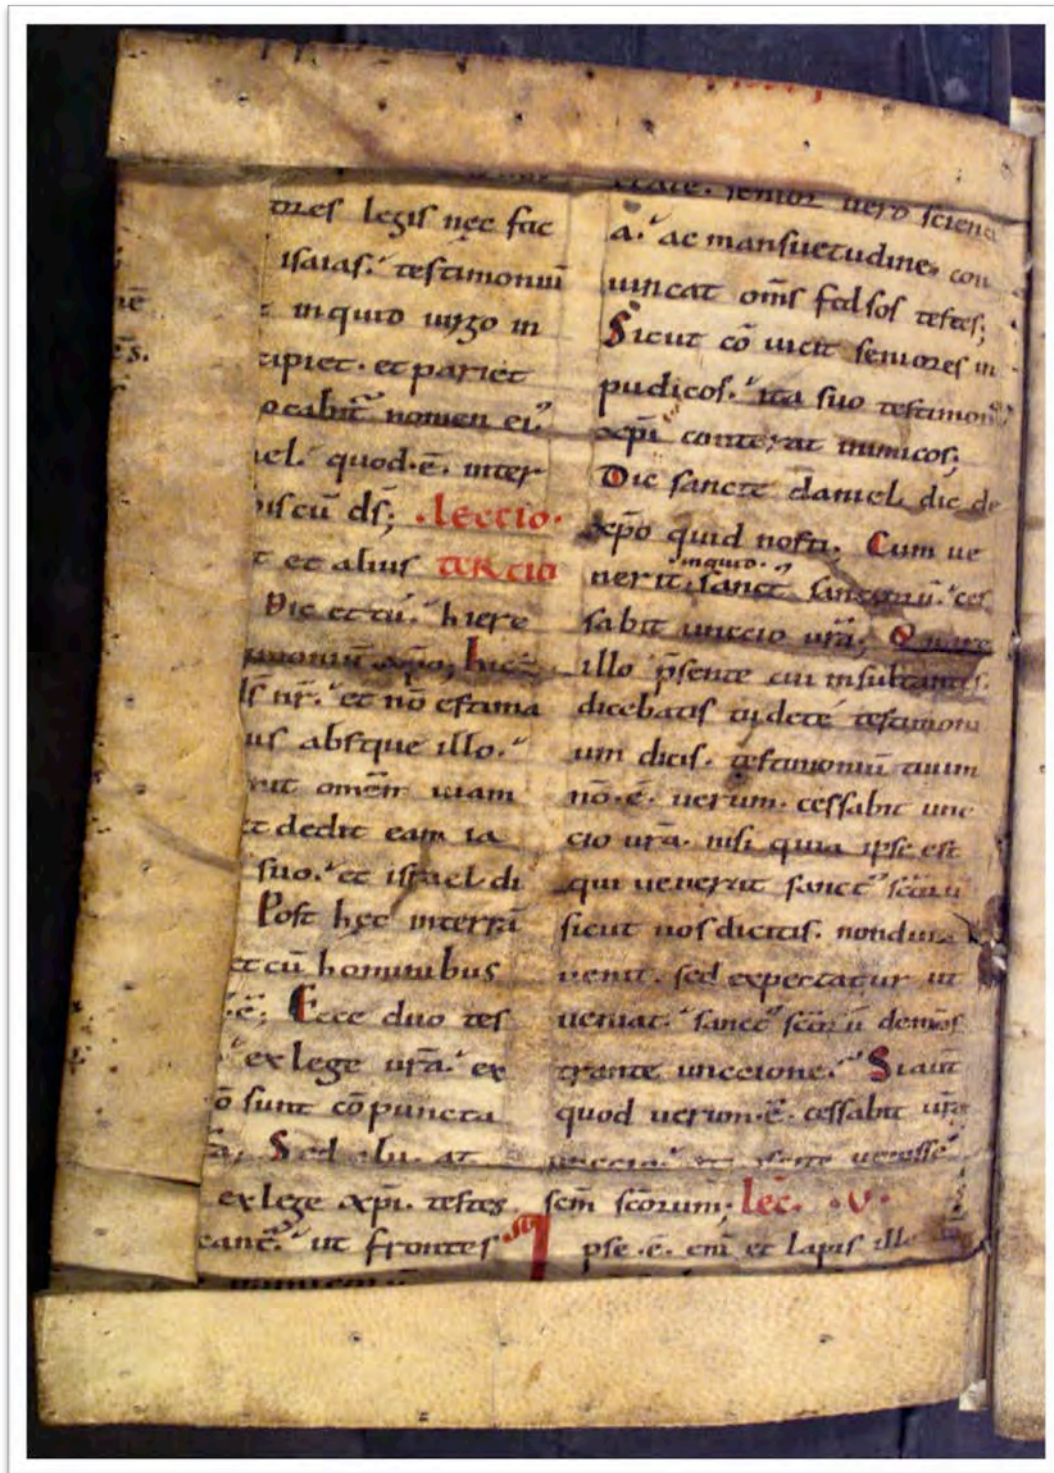 tores legis nec fac
isaias. testimoniū
inquid uirgo in
cipiet. et pariet
ocabit nomen ei
el. quod. ē. inter
biscū ds; .lectio.
t et alius tercia
Dic et tu. hiere
monium xp̄o; hic
ds nr̄. et nō estima
us absque illo.
nit omēm uiam
et dedit eam ia
suo. et israel di
Post hęc interrā
t cū hominibus
ē; Ecce duo tes
ex lege urā. ex
ō sunt cōpuncta
Sed alii
ex lege xp̄i. testes
ut frontes
senior uero sciencia
a. ac mansuetudine con
uincat om̄s falsos testes;
Sicut cō uicit seniores in
pudicos. ita suo testimonio
xp̄i conterat inimicos;
Dic sancte daniel dic de
xp̄o quid nosti. Cum ue
nerit inquid sanct sanctorū. ces
sabit unccio urā; Quare
illo p̄sente cui insultantes.
dicebatis tu de te testimoni
um dicis. testimoniū tuum
nō. ē. uerum. cessabit unc
cio urā. nisi quia ipse est
qui uenerat sanct scōrū
sicut uos dicitis. nondum
uenit. sed expectatur ut
ueniat. sanct scōrū demōs
trante unccione. Si aut
quod uerum. ē. cessabit urā
scm̄ scōrum; lec̄. .v.
Ipse .ē. enī et lapis ille